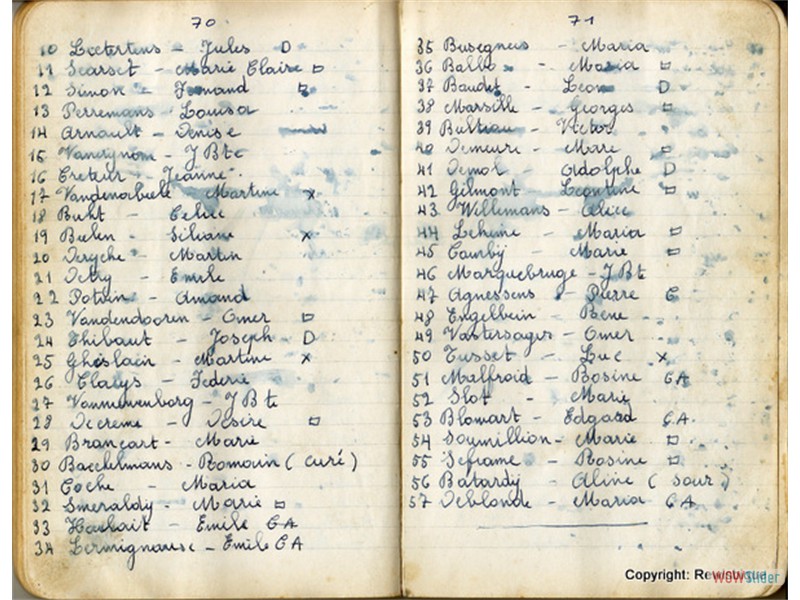 70
10 Loetertens - Jules D
11 Searset - Marie Claire □
12 Simon - Fernand
13 Perremans - Louisa
14 Arnault - Denise
15 - J Bte
16 Creteur - Jeanne
17 Vandenabeele Martine x
18 Buht -
19 Bielen - Liliane x
20 Deryche - Martin
21 Detry - Emile
22 Potvin - Amand
23 Vandendooren - Omer □
24 Thibaut - Joseph D
25 Ghislain - Martine x
26 Clarys -
27 - J Bte
28 Decreme - Désire □
29 Brancart - Marie
30 Baeckelmans - Romain ( curé )
31 Coche - Maria
32 Smeraldy - Marie □
33 Haulait - Emile CA
34 - Emile CA
71
35 Busegnies - Maria
36 Balle - Maria □
37 Baudet - Leon D
38 Marsille - Georges □
39 Bultiau - Victor
40 Demeure - Marie □
41 Demol - Adolphe D
42 Gilmont Leontine □
43 Willemans - Alice
44 Leheine - Maria □
45 Cambÿ - Marie □
46 Marquebruge - J Bt
47 Agnessens - Pierre C
48 Engelbein - Rene
49 Vastersages - Omer
50 Tusset - Luc x
51 Malfroid - Rosine CA
52 Slot - Marie
53 Blomart - Edgard CA
54 Soumillion - Marie □
55 Seframe - Rosine □
56 Batardy - Aline ( sour )
57 Deblonde - Maria CA
Copyright:
WOWSlider